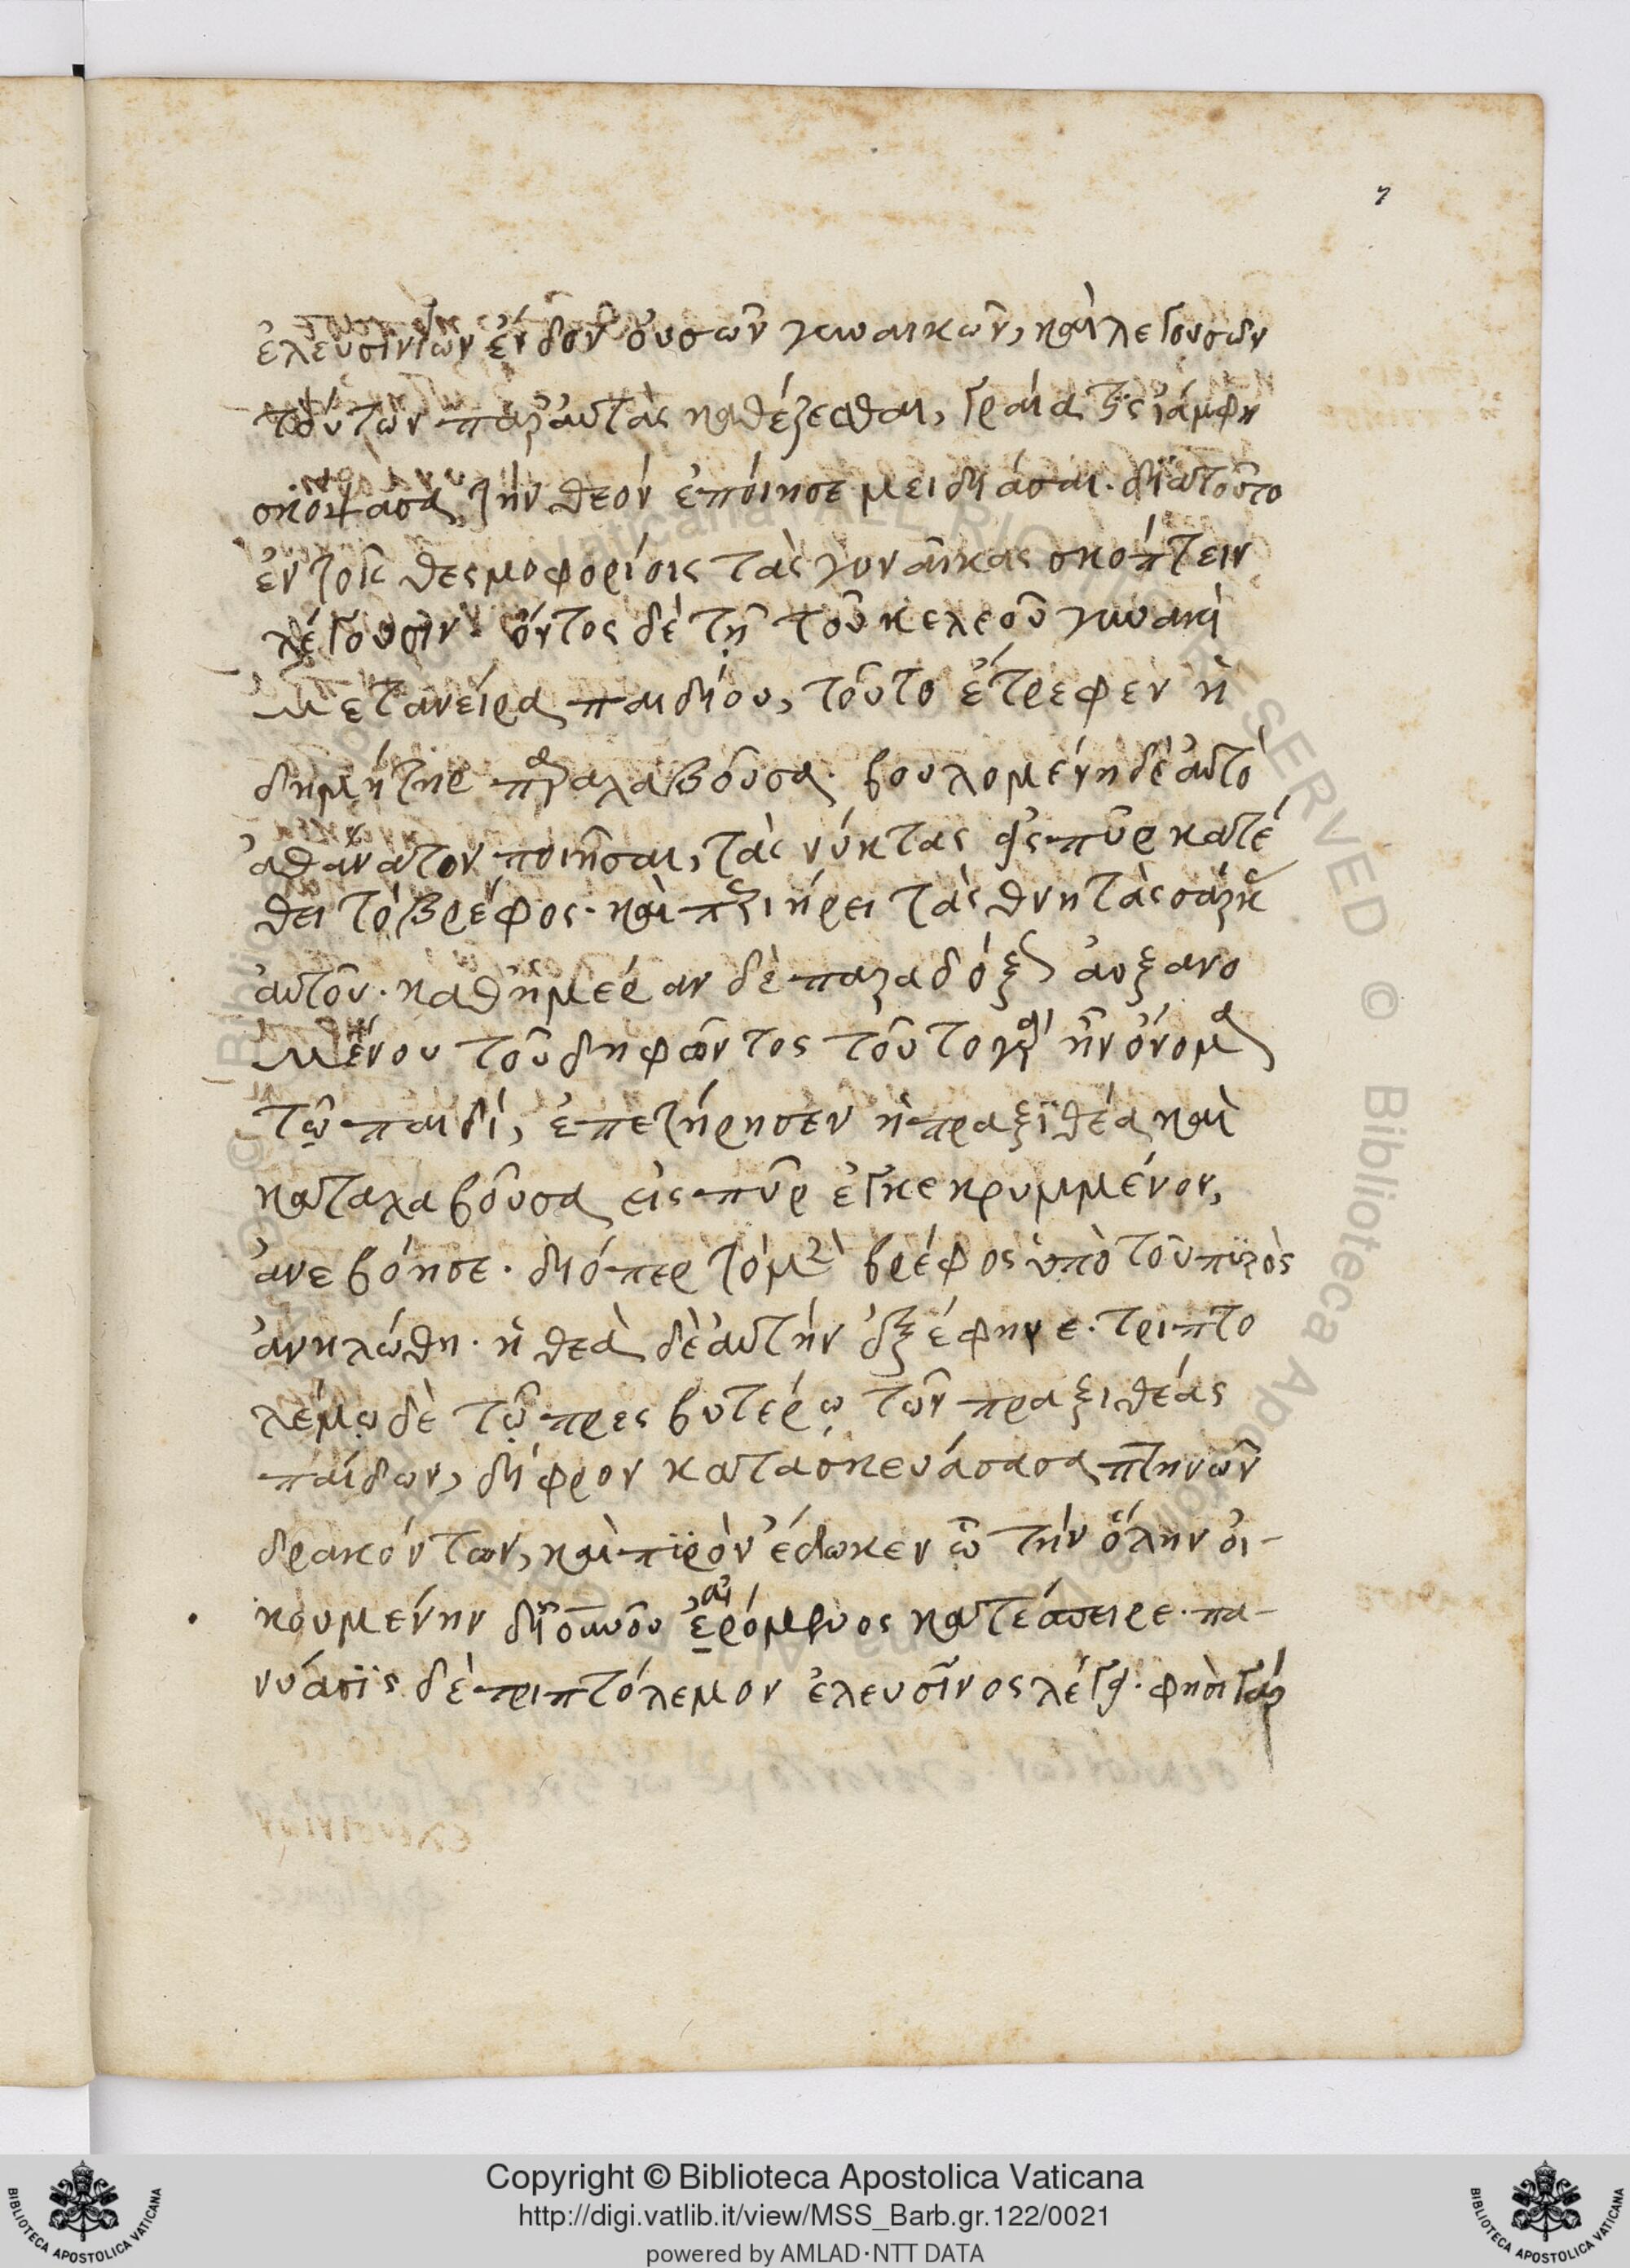 7
ἐλευσινίων ἔνδον οὐσῶν γυναικῶν, καὶ λεγουσῶν
τούτων παρ' αὐτὰς καθέζεσθαι, γραῖά τις ἰάμβη
σκόψασα, τὴν θεὸν ἐποίησε μειδιάσαι. διατοῦτο
ἐν τοῖς θεσμοφορίοις τὰς γυναῖκας σκόπτειν
λέγουσιν. ὄντος δὲ τῇ τοῦ κελεοῦ γυναικὶ
Μετανείρᾳ παιδίου, τοῦτο ἔτρεφεν ἡ
δημήτηρ παραλαβοῦσα. βουλομένη δὲ αὐτὸ
ἀθάνατον ποιῆσαι, τὰς νύκτας εἰς πῦρ κατέ
θει τὸ βρέφος. καὶ περιήρει τὰς θνητὰς σάρκας
αὐτοῦ. καθ' ἡμέραν δὲ παραδόξως αὐξανο
Μένου τοῦ δηφῶντος τοῦτο γὰρ ἦν ὄνομα
τῷ παιδί, ἐπετήρησεν ἡ πραξϊθέα καὶ
καταλαβοῦσα εἰς πῦρ ἐγκεκρυμμένον,
ἀνεβόησε. διόπερ τὸ μὲν βρέφος ὑπὸ τοῦ πυρὸς
ἀνηλώθη. ἡ θεὰ δὲ αὐτὴν ἐξέφηνε. τριπτο
λέμῳ δὲ τῷ πρεσβυτέρῳ τῶν πραξιθέας
παίδων, δίφρον κατασκευάσασα πτηνῶν
δρακόντων, καὶ πϋρὸν ἔδωκεν ᾧ τὴν ὅλην οἰ-
κουμένην δι' οὐρανοῦ ἐρόμενος κατέσπειρε. πα-
νύασϊς δὲ τριπτόλεμον ἐλευσῖνος λέγει. φησὶ γὰρ
Copyright © Biblioteca Apostolica Vaticana
http://digi.vatlib.it/view/MSS_Barb.gr.122/0021
powered by AMLAD·NTT DATA